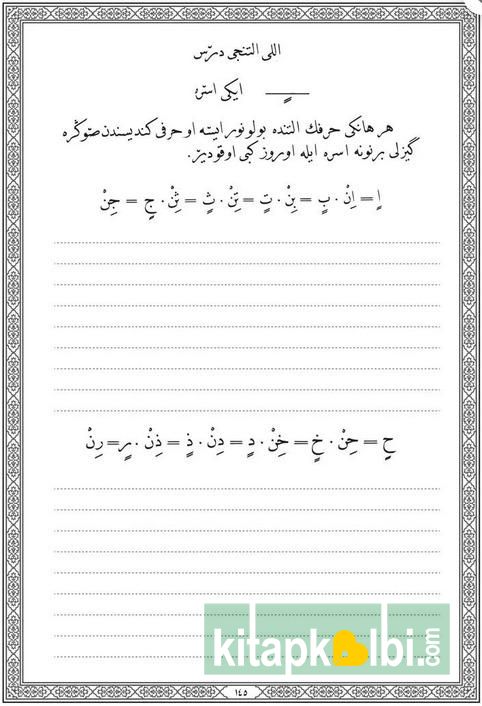 اللی التنجی درس
ایکی استره
هر هانکی حرفك التنده بولونور ایسه او حرفی کندیسندن صوڭره
گیزلی بر نونه اسره ایله اوروز کبی اوقودیر.
اٍ = اِنْ · بٍ = بِنْ · تٍ = تِنْ · ثٍ = ثِنْ · جٍ = جِنْ
حٍ = حِنْ · خٍ = خِنْ · دٍ = دِنْ · ذٍ = ذِنْ · رٍ = رِنْ
kitapkalbi.com
١٤٥